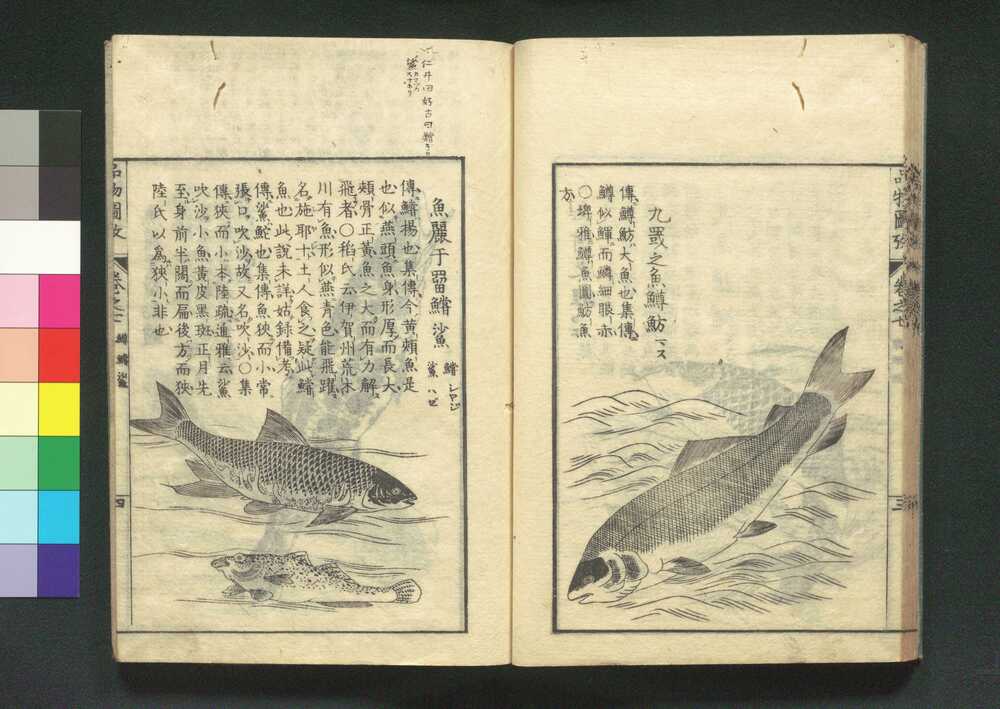 九罭之魚鱒魴 マス
傳鱒魴大魚也集傳
鱒似鯶而鱗細眼赤
○埤雅鱒魚圓魴魚
方
品物圖攷
卷之七
三
仁井田好古曰鱨
魚麗于罶鱨鯊
鱨
鯊 ハゼ
傳鱨揚也集傳今黃頰魚是
也似燕頭魚身形厚而長大
頰骨正黃魚之大而有力解
飛者○稻氏云伊賀州荒木
川有魚形似燕青色能飛躍
名施耶十土人食之疑此鱨
魚也此說未詳姑錄備考
傳鯊鮀也集傳魚狹而小常
張口吹沙故又名吹沙○集
傳狹而小本陸疏通雅云鯊
吹沙小魚黃皮黑斑正月先
至身前半闊而扁後方而狹
陸氏以為狹小非也
品物圖攷
鱨鯊
四